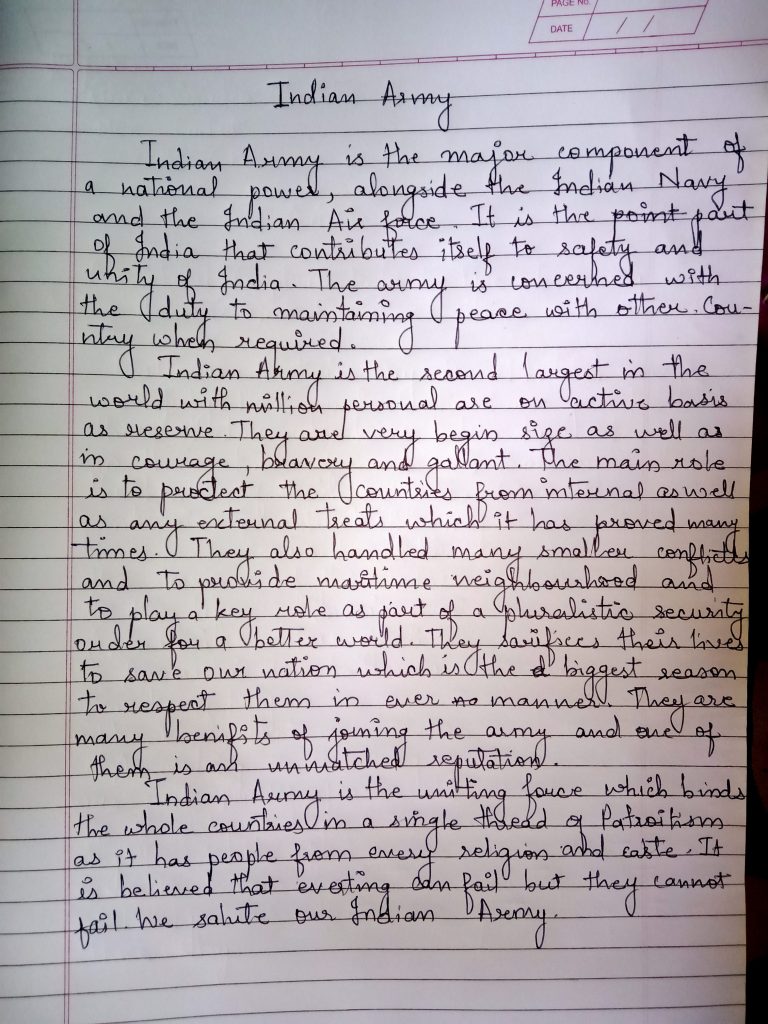 PAGE No.
DATE / /
Indian Army
Indian Army is the major component of
a national power, alongside the Indian Navy
and the Indian Air force. It is the point part
of India that contributes itself to safety and
unity of India. The army is concerned with
the duty to maintaining peace with other. Cou-
ntry when required.
Indian Army is the second largest in the
world with million personal are on active basis
as reserve. They are very begin size as well as
in courage, bravery and gallant. The main role
is to proctect the countries from internal as well
as any external treats which it has proved many
times. They also handled many smaller conflicts
and to provide maritime neighbourhood and
to play a key role as part of a pluralistic security
order for a better world. They sarifices their lives
to save our nation which is the biggest reason
to respect them in ever no manner. They are
many benifits of joining the army and one of
them is an unmatched reputation.
Indian Army is the uniting force which binds
the whole countries in a single thread of Patroitism
as it has people from every religion and caste. It
is believed that eveting can fail but they cannot
fail. We salute our Indian Army.